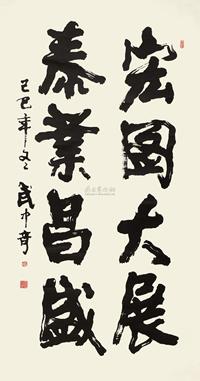 宏图大展
泰业昌盛
己巳年文之武中奇